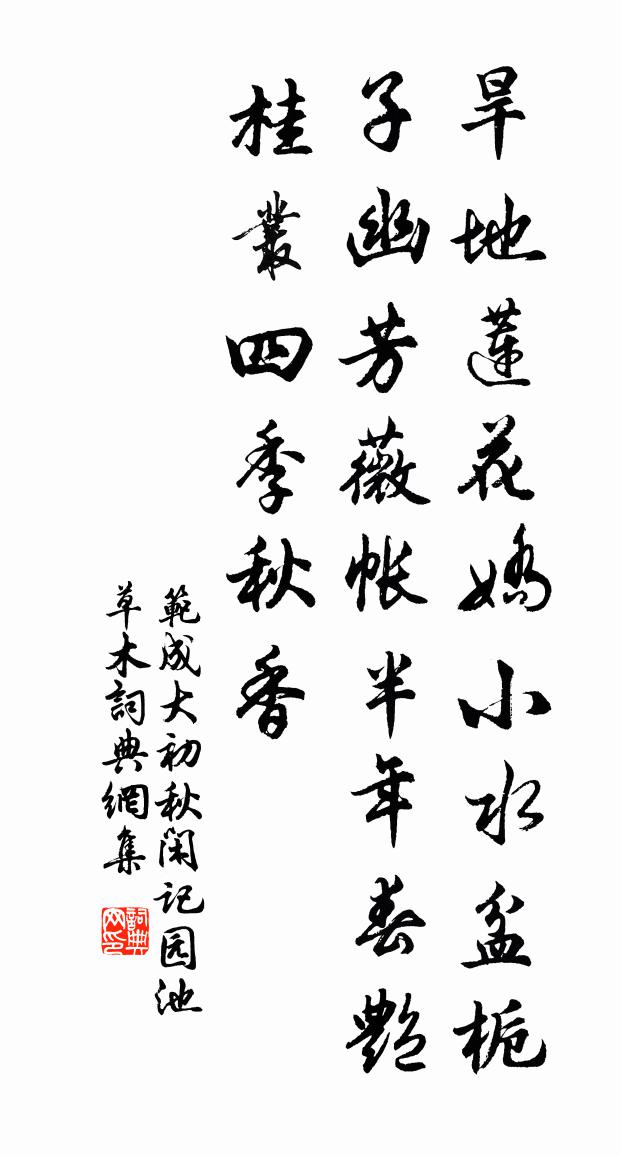 旱地蓮花嬌小水盆栀
子幽芳薇帐半年春艷
桂叢四季秋香
範成大初秋闲記园池
草木詞典網集
詞典网印